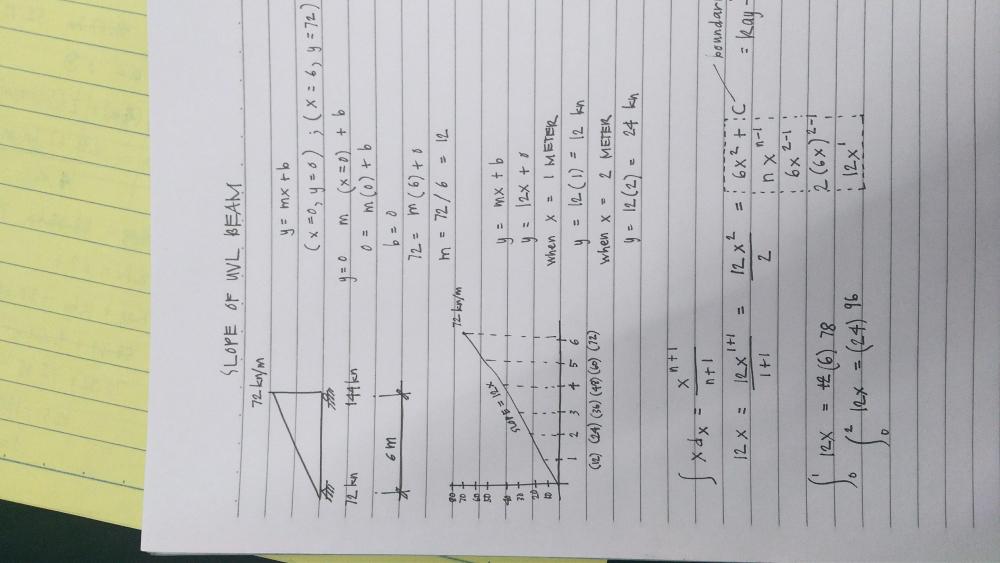 SLOPE OF UVL BEAM
72 kn/m
72 kn
144 kn
6 m
y = mx + b
(x=0, y=0) ; (x = 6, y = 72)
y=0 m (x=0) + b
0 = m(0) + b
b = 0
72 = m(6) + 0
m = 72/6 = 12
72 kn/m
SLOPE = 12X
80
70
60
50
40
30
20
10
1 2 3 4 5 6
(12) (24) (36) (48) (60) (72)
y = mx + b
y = 12x + 0
when x = 1 METER
y = 12(1) = 12 kn
when x = 2 METER
y = 12(2) = 24 kn
∫ x dx = x^(n+1) / (n+1)
12x = 12x^(1+1) / (1+1) = 12x² / 2 = 6x² + C
boundar
= Ray -
n x^(n-1)
6x^(2-1)
2(6x)^(2-1)
12x^1
∫₀¹ 12x = 12 (6) 78
∫₀² 12x = (24) 96